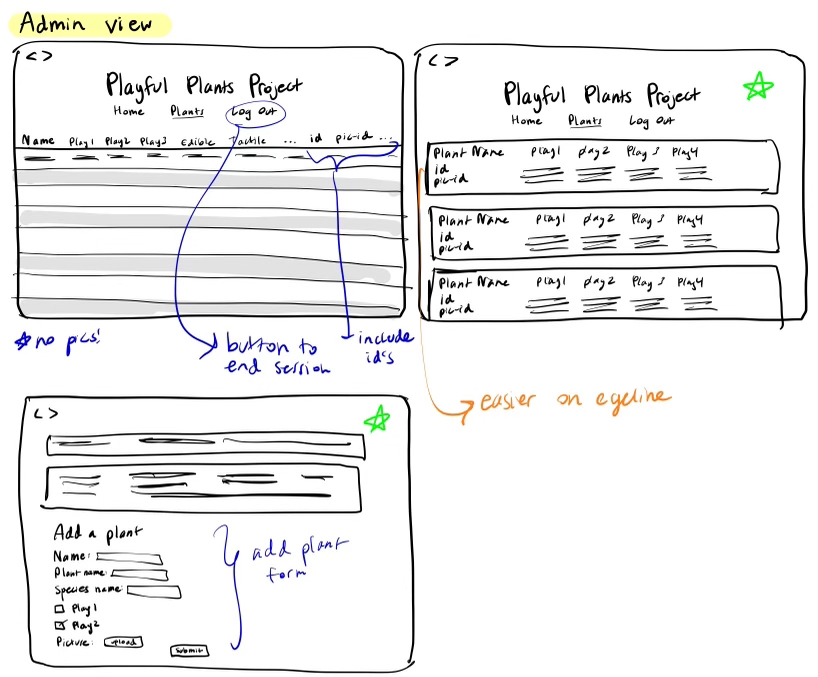 Admin view
< >
Playful Plants Project
Home Plants Log Out
Name Play1 Play2 Play3 Edible Tactile ... id pic-id ...
no pics!
button to
end session
include
id's
< >
Playful Plants Project
Home Plants Log Out
Plant Name Play1 Play2 Play 3 Play4
id
pic-id
Plant Name Play1 Play2 Play 3 Play4
id
pic-id
Plant Name Play1 Play2 Play 3 Play4
id
pic-id
easier on eyeline
< >
Add a plant
Name:
Plant name:
Species name:
Play1
Play2
Picture: upload
Submit
add plant
form